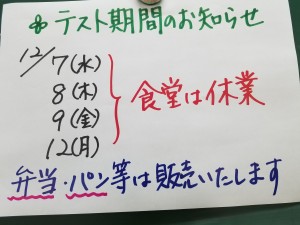 テスト期間のお知らせ
12/7(水)
8(木)
9(金)
12(月)
食堂は休業
弁当・パン等は販売いたします